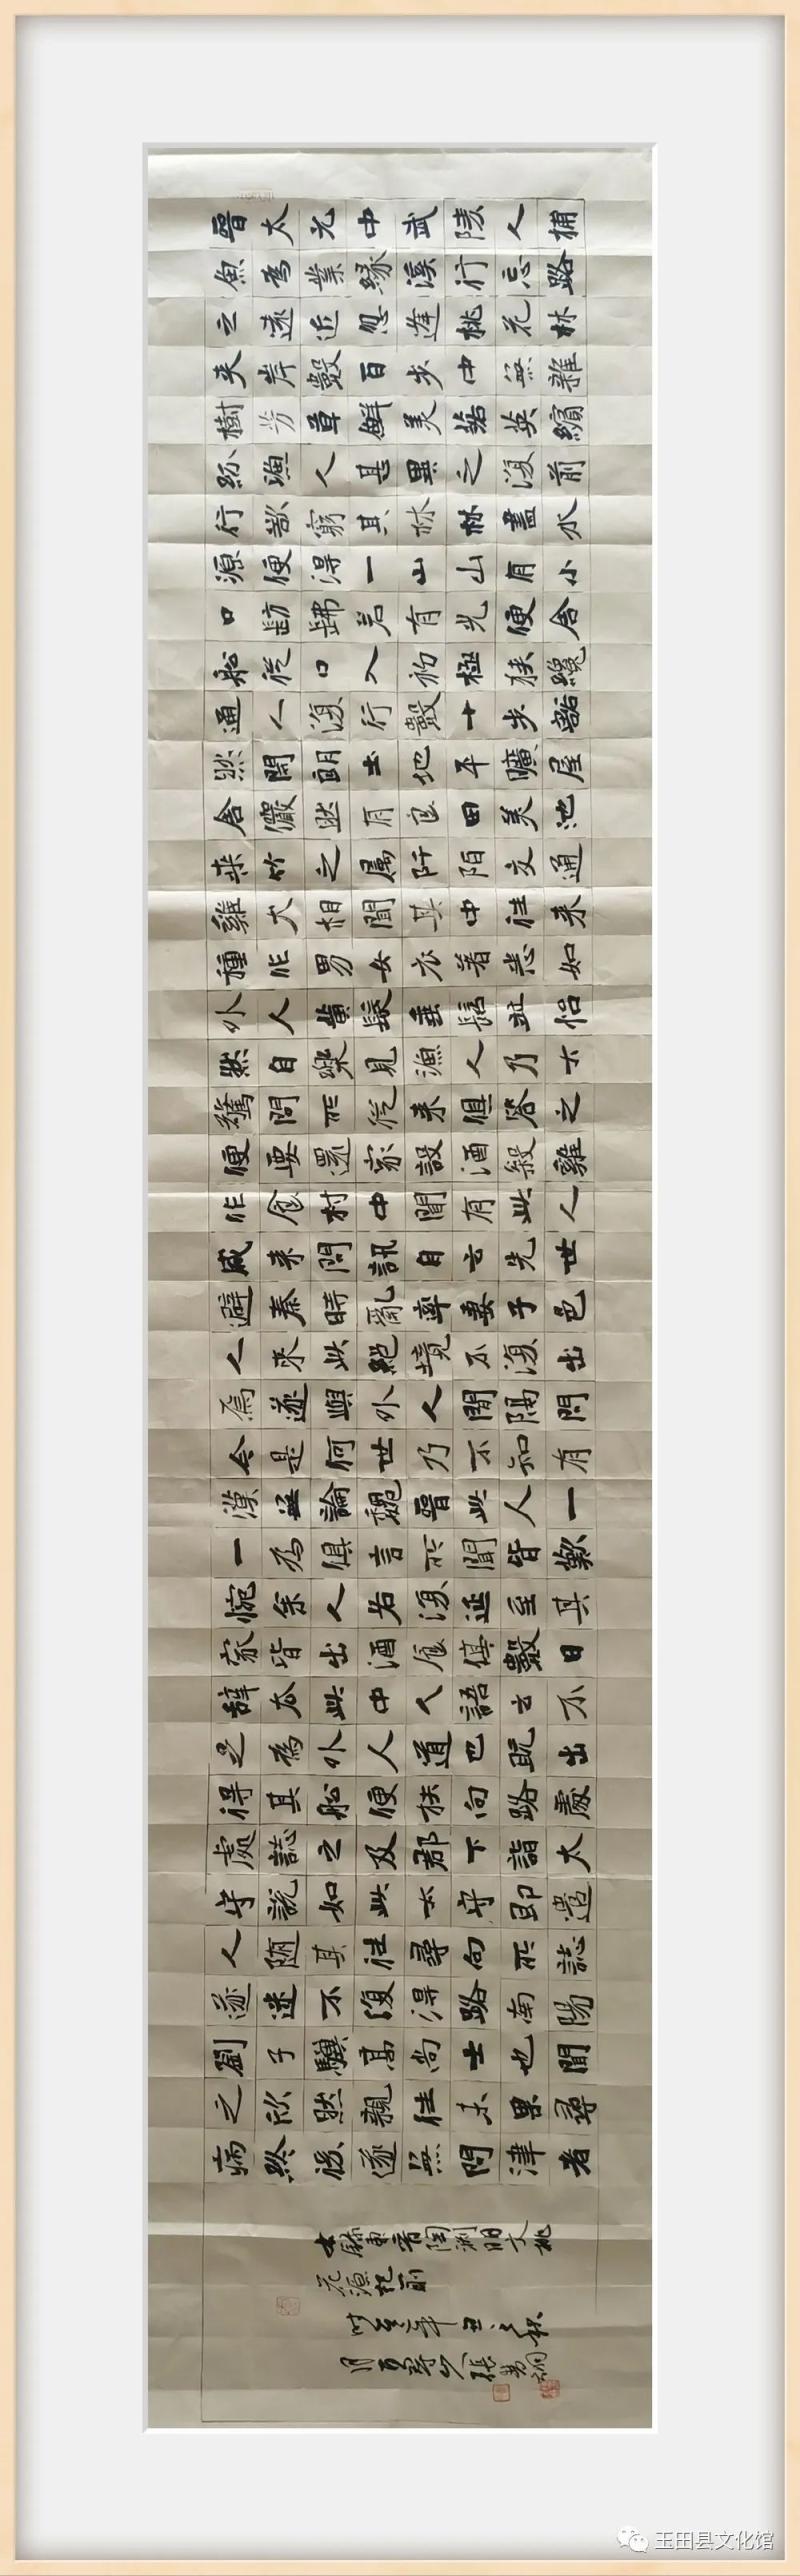 晉太元中武陵人捕
魚為業緣溪行忘路
之遠近忽逢桃花林
夾岸數百步中無雜
樹芳草鮮美落英繽
紛漁人甚異之復前
行欲窮其林林盡水
源便得一山山有小
口髣髴若有光便舍
船從口入初極狹纔
通人復行數十步豁
然開朗土地平曠屋
舍儼然有良田美池
桑竹之属阡陌交通
雞犬相聞其中往来
種作男女衣著悉如
外人黃髮垂髫並怡
然自樂見漁人乃大
驚問所從来俱答之
便要還家設酒殺雞
作食村中聞有此人
咸来問訊自云先世
避秦時亂率妻子邑
人来此絕境不復出
焉遂與外人間隔問
今是何世乃不知有
漢無論魏晉此人一
一為俱言所聞皆歎
惋余人各復延至其
家皆出酒食停數日
辭去此中人語云不
足為外人道也既出
得其船便扶向路處
處誌之及郡下詣太
守說如此太守即遣
人随其往尋向所誌
遂迷不復得路南陽
劉子驥高尚士也聞
之欣然親往未果尋
病終後遂無問津者
東晉陶淵明文桃
花源記
年丑秋
月張
玉田县文化馆